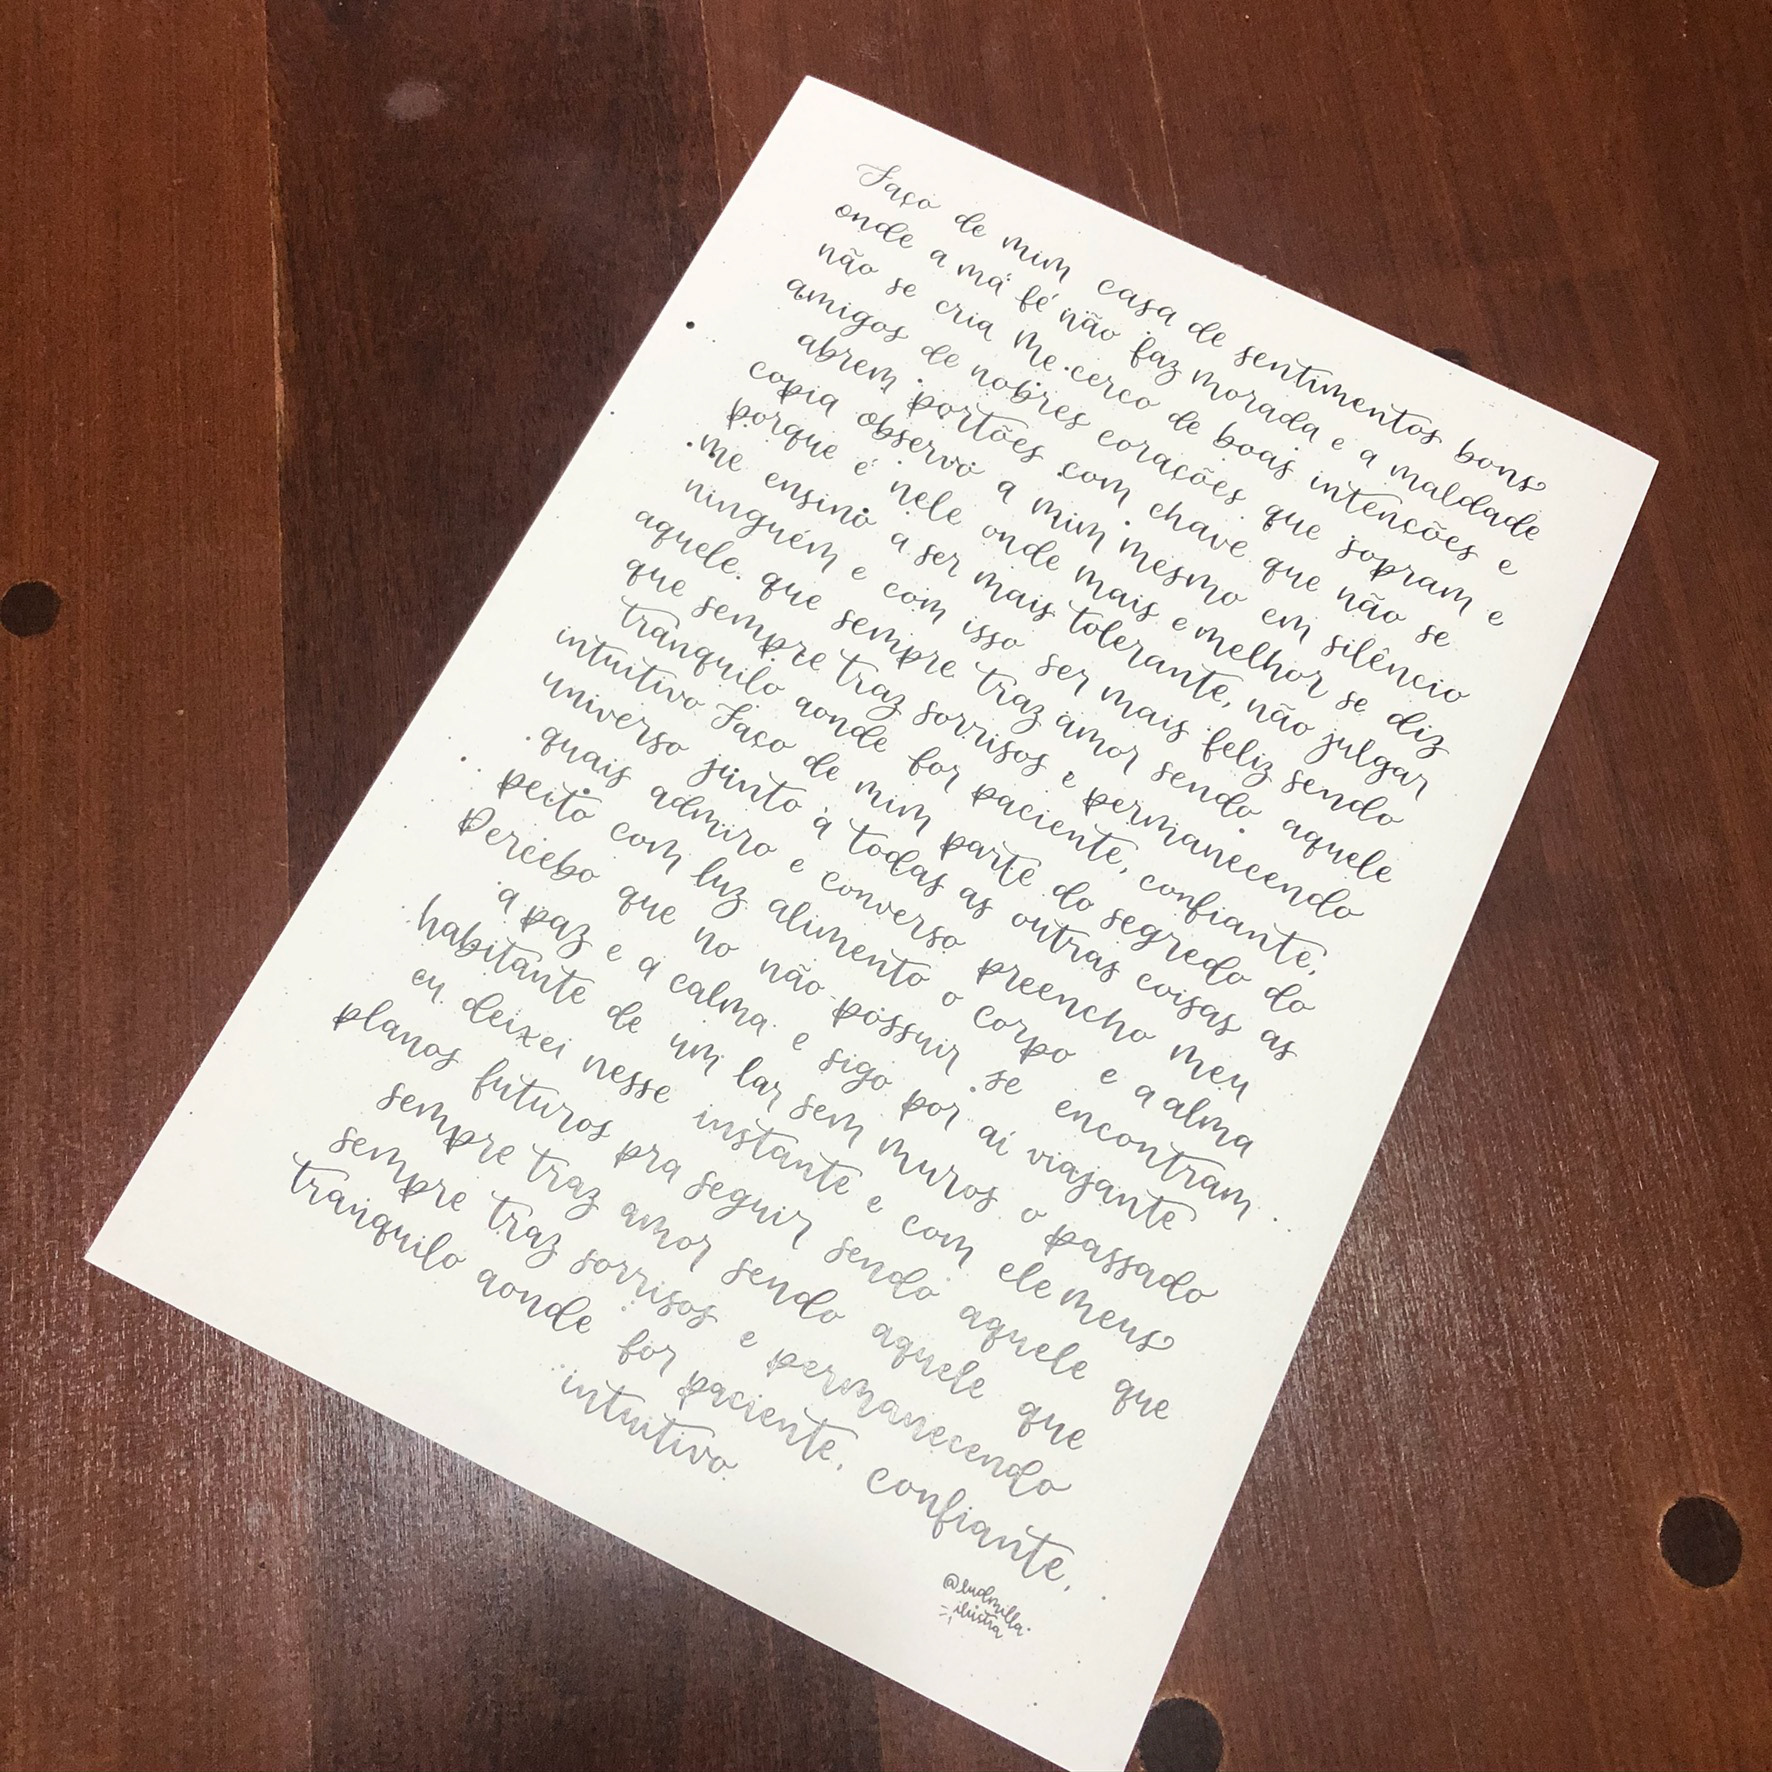 Faço de mim casa de sentimentos bons
onde a má fé não faz morada e a maldade
não se cria Me cerco de boas intenções e
amigos de nobres corações que sopram e
abrem portões com chave que não se
copia observo a mim mesmo em silêncio
porque é nele onde mais e melhor se diz
me ensino a ser mais tolerante, não julgar
ninguém e com isso ser mais feliz sendo
aquele que sempre traz amor sendo aquele
que sempre traz sorrisos e permanecendo
tranquilo aonde for paciente, confiante,
intuitivo Faço de mim parte do segredo do
universo junto à todas as outras coisas as
quais admiro e converso preencho meu
peito com luz alimento o corpo e a alma
Percebo que no não possuir se encontram
a paz e a calma e sigo por aí viajante
habitante de um lar sem muros o passado
eu deixei nesse instante e com ele meus
planos futuros pra seguir sendo aquele que
sempre traz amor sendo aquele que
sempre traz sorrisos e permanecendo
tranquilo aonde for paciente, confiante,
intuitivo.
@ludmilla.
ilustra